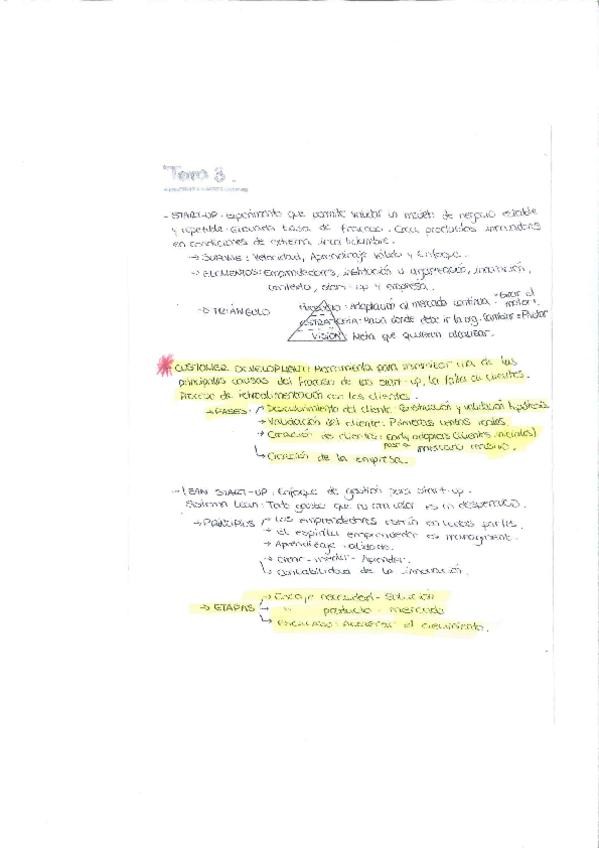 Tema 3.
- START-UP. Experimento que permite validar un modelo de negocio estable
y repetible. Elevada tasa de fracaso. Crea productos innovadores
en condiciones de extrema incertidumbre.
→ SUPONE: Velocidad, Aprendizaje válido y Enfoque.
→ ELEMENTOS: Emprendedores, institución u organización, innovación,
contexto, start-up y empresa.
→ TRIÁNGULO
Producto. Adaptación al mercado continua. el motor.
ESTRATEGIA: Hacia donde debe ir la org. Cambiar = Pivotar
VISIÓN: Meta que quieren alcanzar.
* CUSTOMER DEVELOPMENT: Herramienta para minimizar una de las
principales causas del fracaso de las start-up, la falta de clientes.
Proceso de retroalimentación con los clientes.
→ FASES: → Descubrimiento del cliente. Construcción y validación hipótesis
→ Validación del cliente. Primeras ventas reales.
→ Creación de clientes: Early adopters (clientes iniciales)
mercado masivo.
→ Creación de la empresa.
- LEAN START-UP. Enfoque de gestión para start-up.
Sistema Lean: Todo gasto que no crea valor es un desperdicio.
→ PRINCIPIOS → Los emprendedores están en todas partes.
→ El espíritu emprendedor es managment.
→ Aprendizaje validado.
→ Crear - medir - Aprender.
→ Contabilidad de la innovación.
→ ETAPAS → Encaje necesidad - Solución
→ " producto - mercado
→ Escalado: Acelerar el crecimiento.